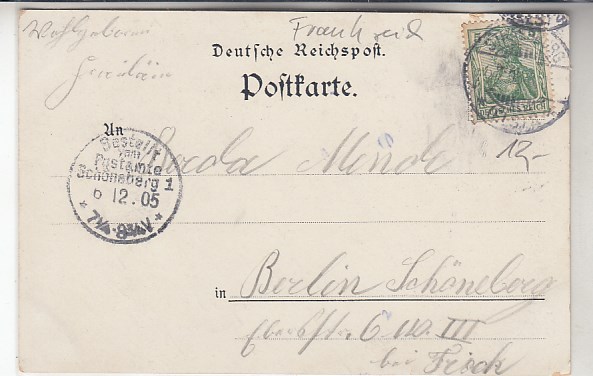 Wohlgeboren
Fräulein
Frankreich
Deutsche Reichspost.
Postkarte.
An
Mende
Bestellt
vom
Postamte
Schöneberg 1
6 12. 05
* 7¼-8¾V *
12,-
in Berlin Schöneberg
6 III
bei Frick